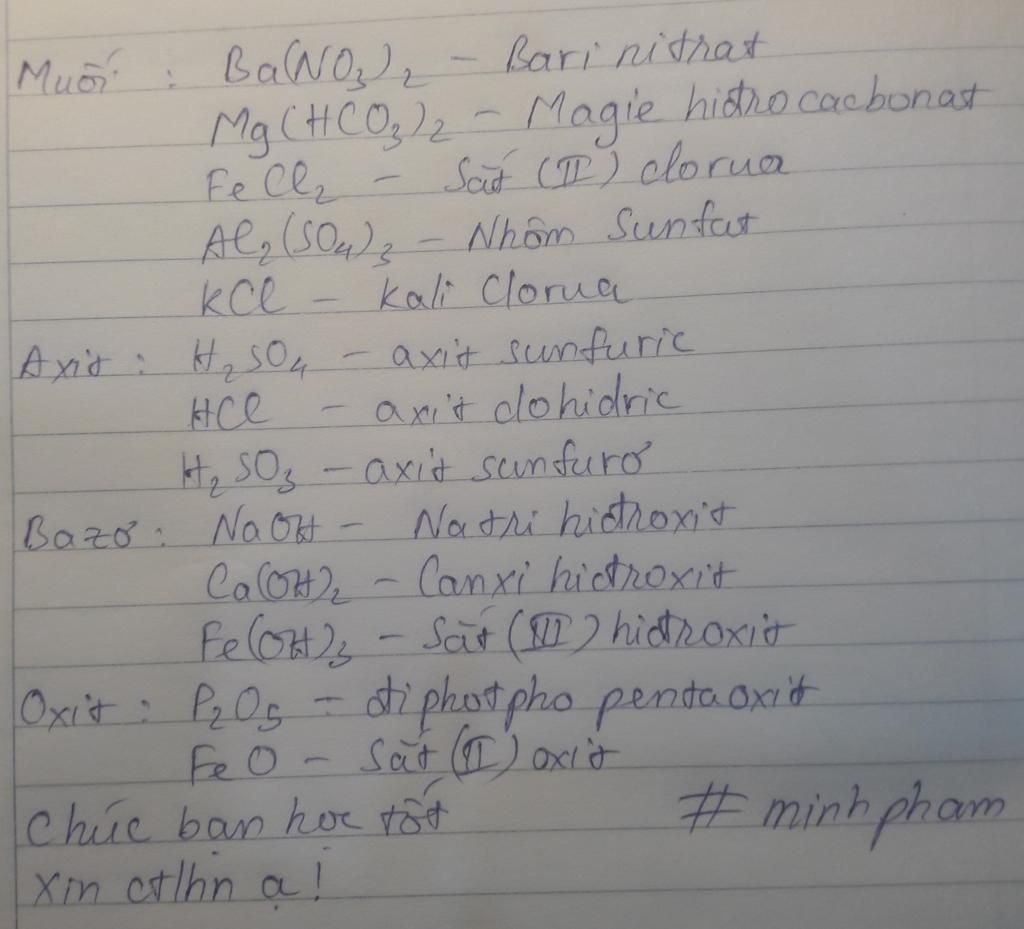 Muối : Ba(NO₃)₂ – Bari nitrat
Mg(HCO₃)₂ – Magie hiđrocacbonat
FeCl₂ – Sắt (II) clorua
Al₂(SO₄)₃ – Nhôm Sunfat
KCl – Kali Clorua
Axit : H₂SO₄ – axit sunfuric
HCl – axit clohidric
H₂SO₃ – axit sunfurơ
Bazơ : NaOH – Natri hiđroxit
Ca(OH)₂ – Canxi hiđroxit
Fe(OH)₃ – Sắt (III) hiđroxit
Oxit : P₂O₅ – điphotpho pentaoxit
FeO – Sắt (II) oxit
Chúc bạn học tốt # minhpham
xin ctlhn ạ !